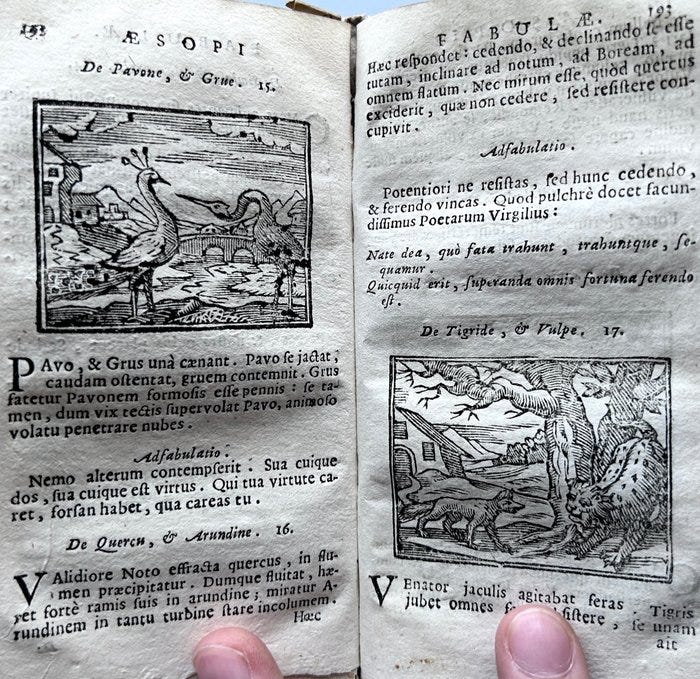 192
ÆSOPI
De Pavone, & Grue. 15.
PAvo, & Grus unà cænant. Pavo se jactat;
caudam ostentat, gruem contemnit. Grus
fatetur Pavonem formosis esse pennis: se ta-
men, dum vix tectis supervolat Pavo, animoso
volatu penetrare nubes.
Adfabulatio.
Nemo alterum contempserit. Sua cuique
dos, sua cuique est virtus. Qui tua virtute ca-
ret, forsan habet, qua careas tu.
De Quercu, & Arundine. 16.
VAlidiore Noto effracta quercus, in flu-
men præcipitatur. Dumque fluitat, hæ-
ret fortè ramis suis in arundine; miratur A-
rundinem in tantu turbine stare incolumem.
Hæc
FABULÆ.
193
Hæc respondet: cedendo, & declinando se esse
tutam, inclinare ad notum, ad Boream, ad
omnem flatum. Nec mirum esse, quòd quercus
exciderit, quæ non cedere, sed resistere con-
cupivit.
Adfabulatio.
Potentiori ne resistas, sed hunc cedendo,
& ferendo vincas. Quod pulchrè docet facun-
dissimus Poetarum Virgilius:
Nate dea, quò fata trahunt, trahuntque, se-
quamur.
Quicquid erit, superanda omnis fortuna ferendo
est.
De Tigride, & Vulpe. 17.
VEnator jaculis agitabat feras. Tigris
jubet omnes sistere, se unam
ait